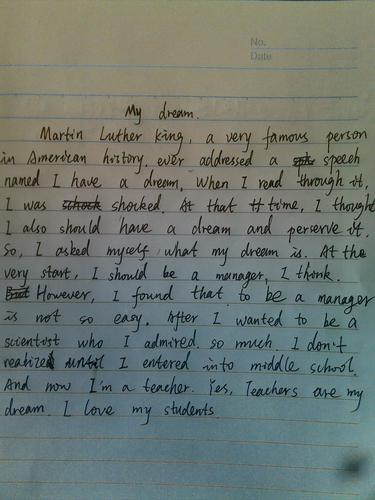 No.
Date
My dream.
Martin Luther king, a very famous person
in American history, ever addressed a speech
named I have a dream. When I read through it,
I was shocked. At that time, I thought
I also should have a dream and perserve it.
So, I asked myself what my dream is. At the
very start, I should be a manager, I think.
However, I found that to be a manager
is not so easy. After I wanted to be a
scientist who I admired so much. I don't
realized until I entered into middle school.
And now I'm a teacher. Yes, Teachers are my
dream. I love my students